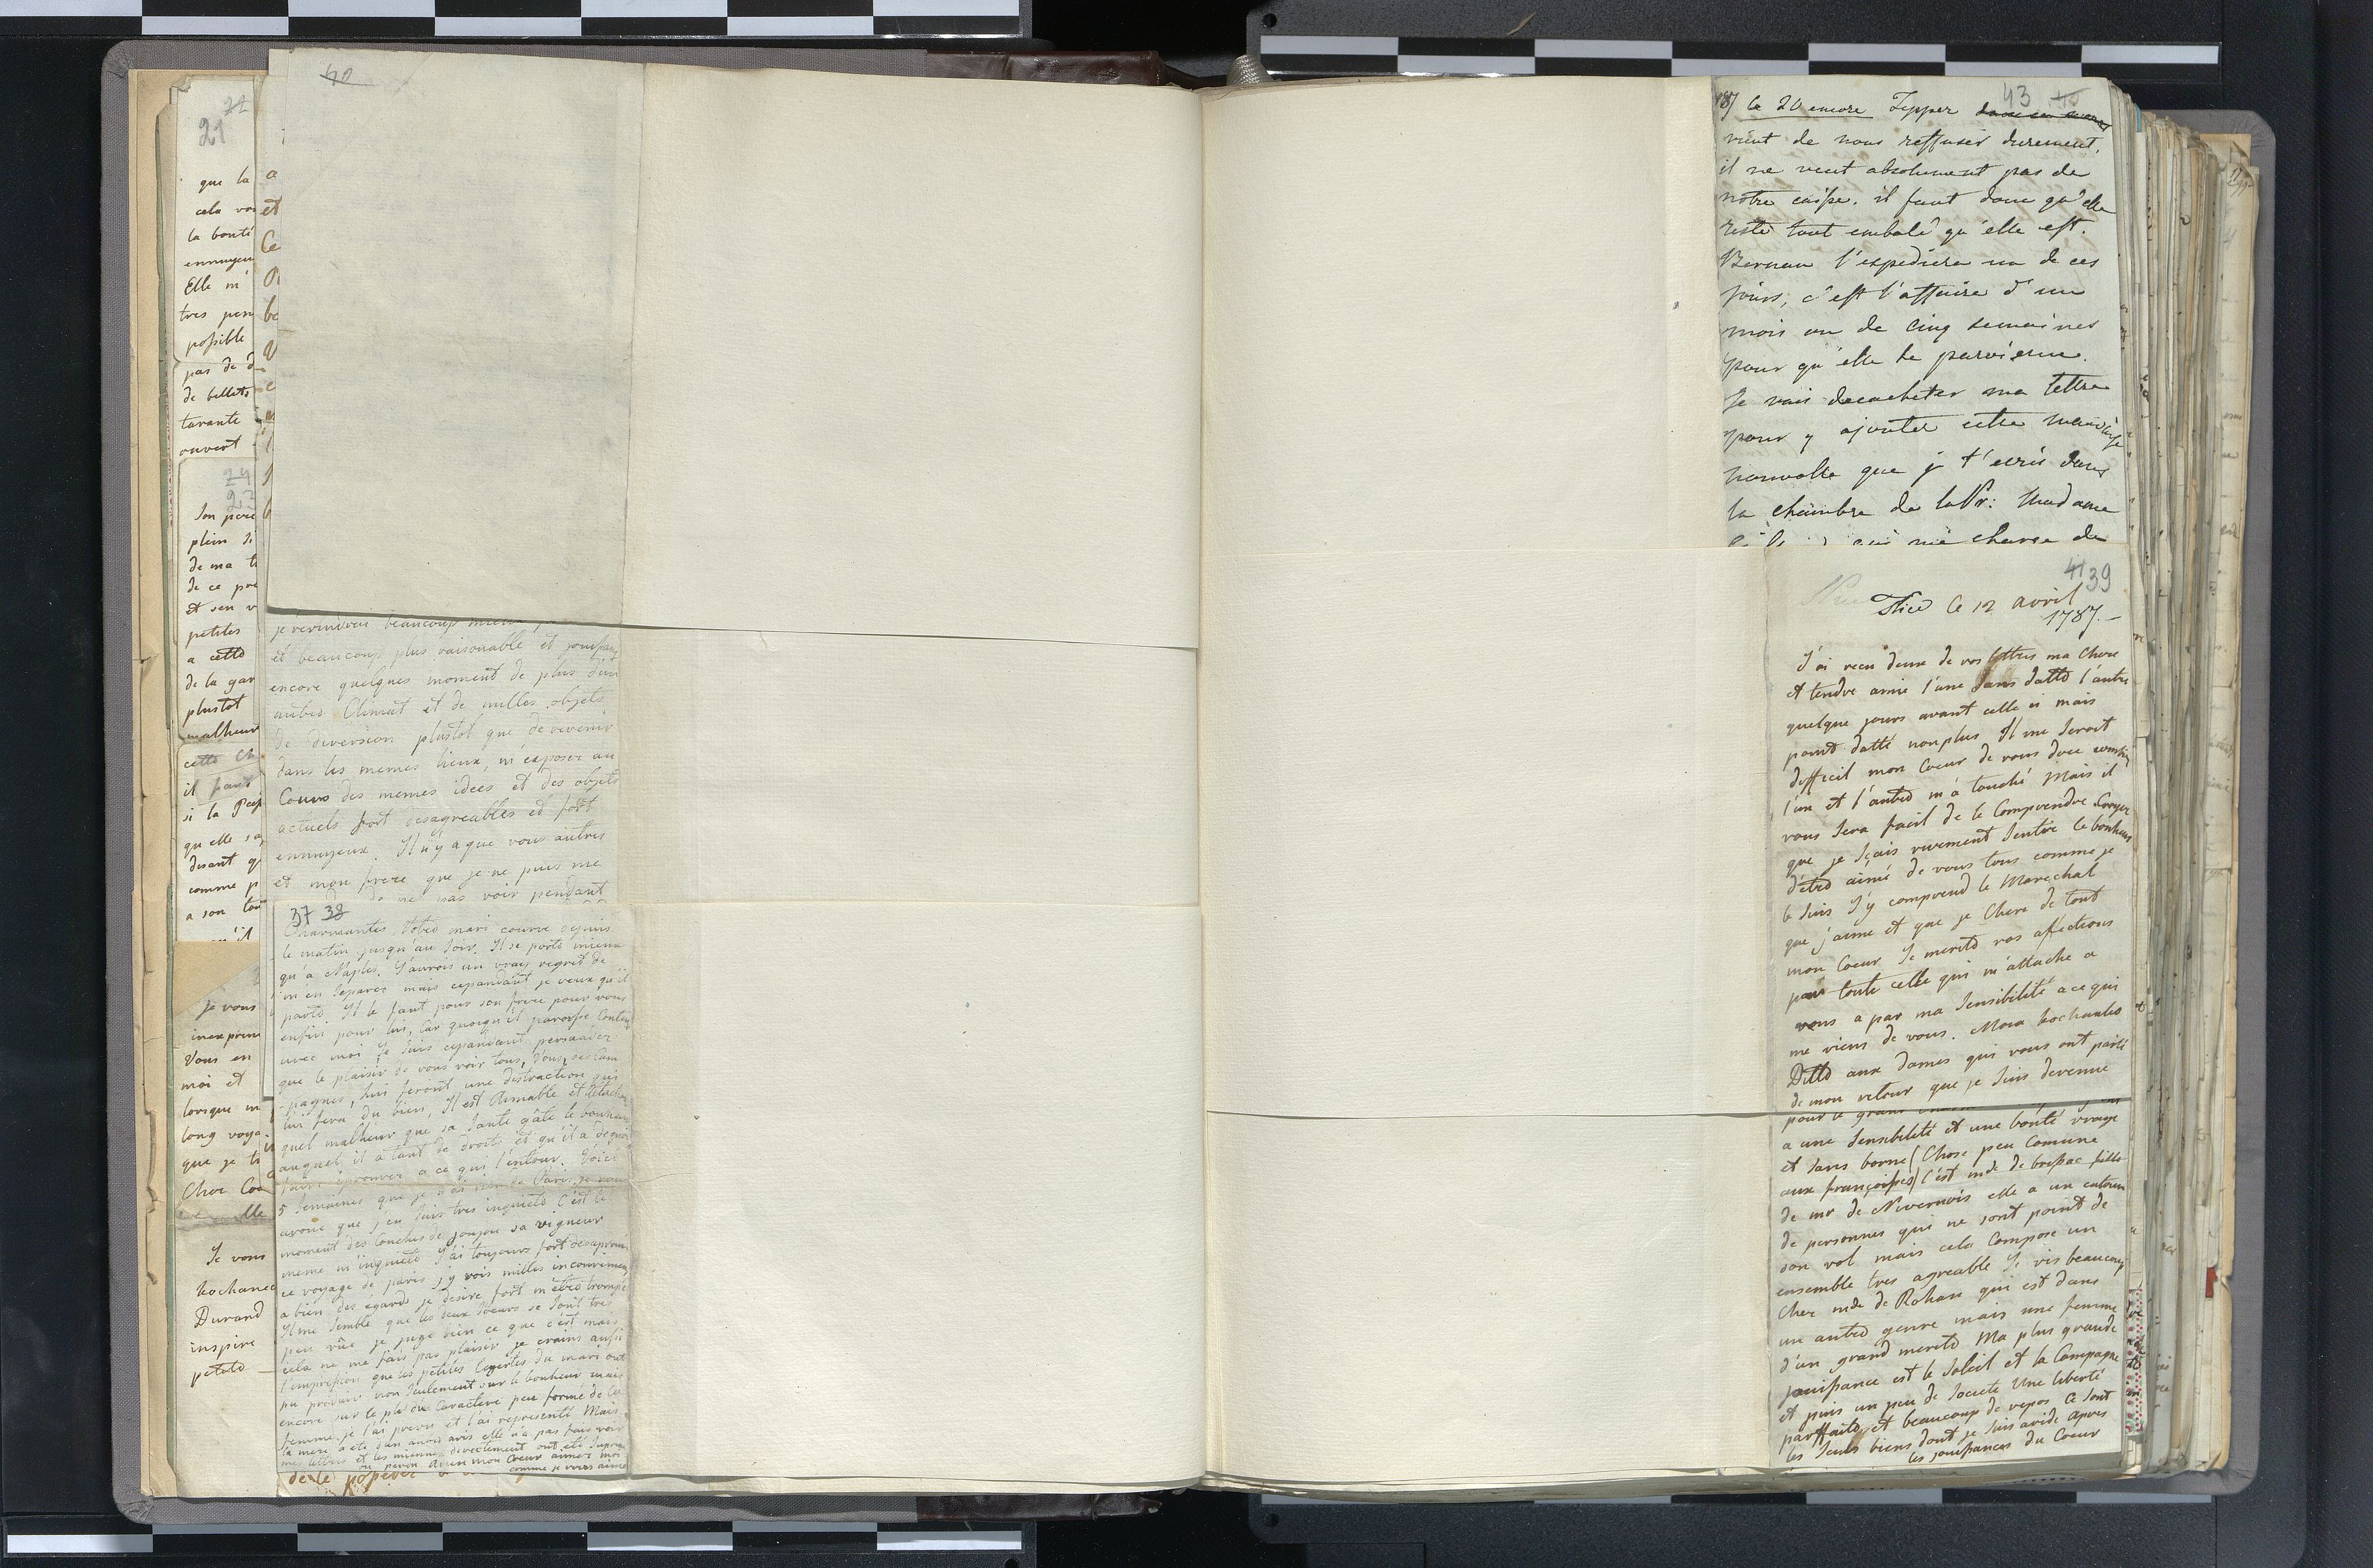 22
21
que la
cela vo
la bonté
ennuyeu
Elle m'
tres pen
possible
pas de d
de billets
tarante
ouvert
24
23
son pere
plein di
de ma t
de ce po
et sen v
petites
a cette
de la gar
plustot
malheur
cette ch
il faut
si la Pcip
qu'elle sa
disant q
comme p
a son tou
je vous
inexprim
Vous en
moi et
lorsque m
long voya
que je ti
Cher Coe
lle
Je vous
kochanec
Durand
inspire
petite
a
et
Ce
be
40
je reviendrai beaucoup mieux
et beaucoup plus raisonable et jouissant
encore quelques moment de plus d'un
autre Climat et de milles objets
de diversion plustot que de revenir
dans les memes lieux, m'exposer au
Cours des memes idees et des objets
actuels fort desagreables et fort
ennuyeux. Il n'y a que vous autres
et mon frere que je ne puis me
ne pas voir pendant
37 38
Charmantes. Votre mari courre depuis
le matin jusqu'au soir. Il se porte mieux
qu'a Naples. J'aurois un vrai regret de
m'en separer mais cependant je veux qu'il
parte Il le faut pour son frere pour vous
enfin pour lui, Car quoiqu'il paroisse Content
avec moi Je suis cependant persuader
que le plaisir de vous voir tous, Vous, sa Cam
pagne, lui feront une distraction qui
lui fera du bien, Il est Aimable et Attachant
quel malheur que sa Santé gâte le bonheur
auquel il a tant de droits et qu'il a de quoi
faire eprouver a ce qui l'entour. Voici
5 semaines que je n'ai rien de Paris je vous
avoue que j'en suis tres inquiete C'est le
moment des couches de joujou sa vigueur
meme m'inquiete J'ai toujours fort desaprouvé
ce voyage de paris j'y vois milles inconvenien
a bien des égards je desire fort m'etre trompé
Il me semble que les deux soeurs se sont tres
peu vûe je juge bien ce que c'est mais
cela ne me fais pas plaisir je crains aussi
l'impression que les petites legertes du mari ont
pu produir non seulement sur le bonheur mais
encore sur le pli du Caractere peu formé de la
femme je l'ai prevu et l'ai representé Mais
la mere a été d'un autre avis elle n'a pas fais voir
mes lettres et les miennes directement ont été supri
Adieu mon Coeur aimer moi
comme je vous aime
de le
87 le 20 encore Tepper
vient de nous reffuser durement,
il ne veut absolument pas de
notre caisse. il faut donc qu'elle
reste tout embalé qu'elle est.
Bernau l'expediera un de ces
jours, c'est l'affaire d'un
mois ou de cinq semaines
pour qu'elle te parvienne.
Je vais decacheter ma lettre
pour y ajouter cette mauvaise
nouvelle que je t'ecris dans
la chambre de la Pr: Madame
me charge de
43 40
41 39
Nice le 12 Avril
1787.-
J'ai recu deux de vos lettres ma Chere
et tendre amie l'une sans datte l'autre
quelque jours avant celle ci mais
point datté non plus Il me seroit
difficil mon Coeur de vous dire combien
l'un et l'autre m'a touché Mais il
vous sera facil de le Comprendre Croyer
que je sçais vivement sentir le bonheur
d'être aimé de vous tous comme je
le suis J'y comprend le Marechal
que j'aime et que je Cheri de tout
mon Coeur Je merite vos afections
par toute celle qui m'attache a
vous a par ma sensibilité a ce qui
me viens de vous. Moia kochanko
Ditte aux dames qui vous ont parlé
de mon retour que je suis devenue
a une sensibilité et une bonté vraye
et sans borne (Chose peu Comune
aux françoises) C'est mde de brissac fille
de mr de Nivernois elle a un entour
de personnes qui ne sont point de
son vol mais cela Compose un
ensemble tres agreable Je vis beaucoup
Chez mde de Rohan qui est dans
un autre genre mais une femme
d'un grand merite Ma plus grande
jouissance est le Soleil et la Campagne
et puis un peu de Societe Une liberté
parffaite et beaucoup de repos Ce sont
les seuls biens dont je suis avide Apres
les jouissances du Coeur